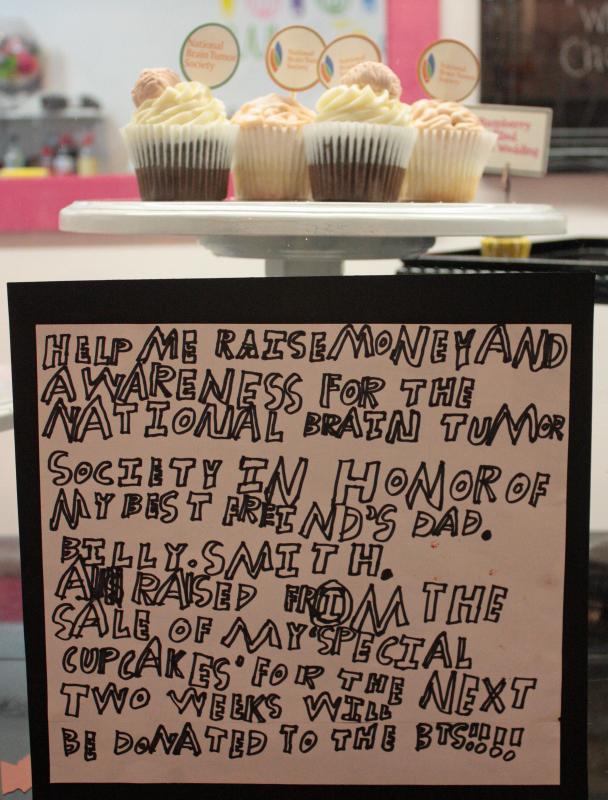 National
Brain Tumor
Society
National
Brain Tumor
Society
Raspberry
Wedding
HELP ME RAISE MONEY AND
AWARENESS FOR THE
NATIONAL BRAIN TUMOR
SOCIETY IN HONOR OF
MY BEST FREIND'S DAD.
BILLY. SMITH.
RAISED FROM THE
SALE OF MY "SPECIAL
CUPCAKES" FOR THE NEXT
TWO WEEKS WILL
BE DONATED TO THE BTS!!!!